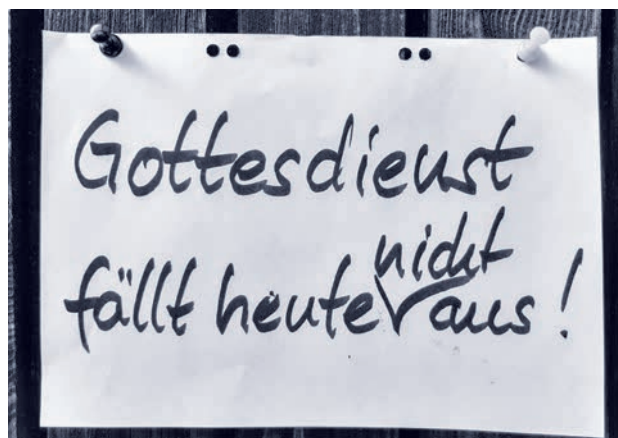 Gottesdienst
fällt heute nicht aus!